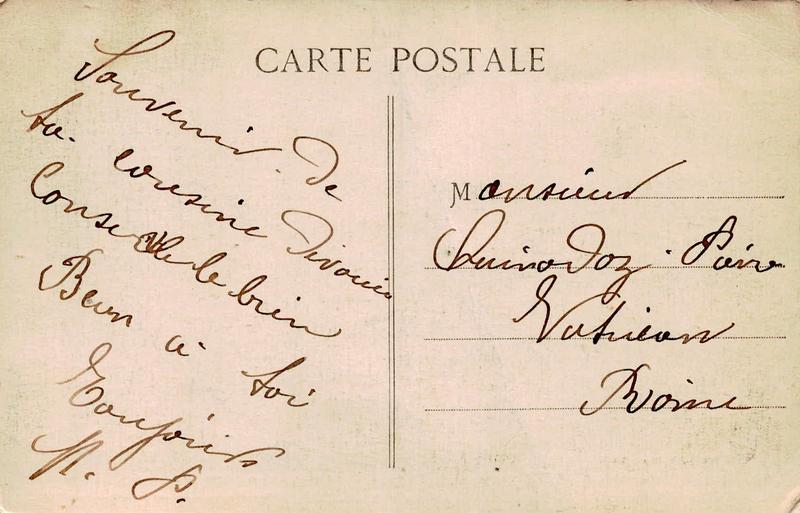 CARTE POSTALE
Souvenir de
ta cousine
Conserve le bien
Bien à toi
Toujours
Monsieur
Quinodoz
Vatican
Rome